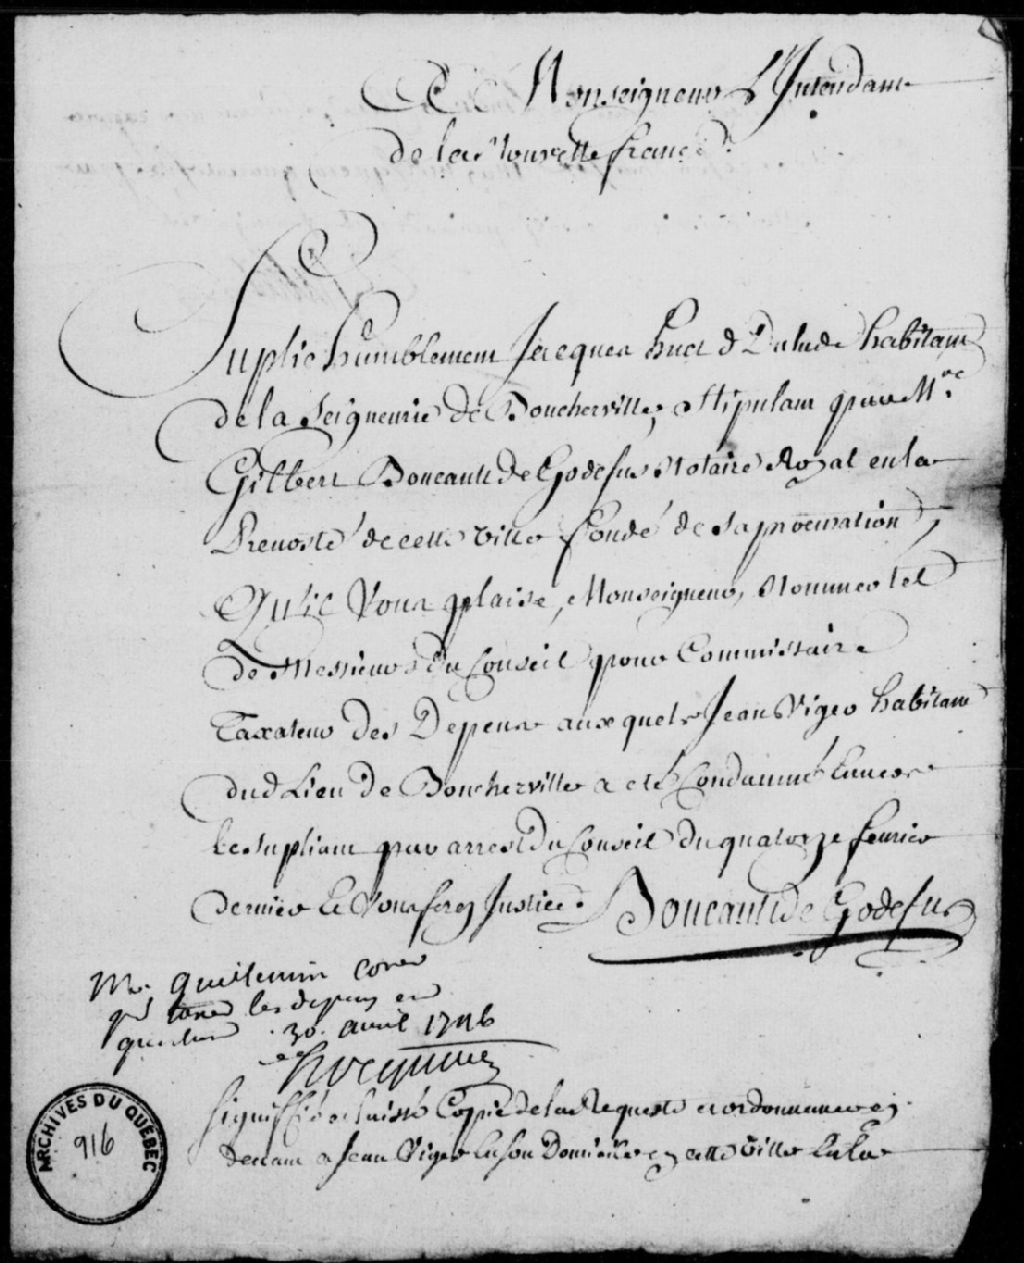 A Monseigneur L'Intendant
de la Nouvelle france
Suplie humblement Jacques huet d Dulude habitant
de la Seigneurie de Boucherville, stipulant par Me
Gilbert Boucault de Godefus Notaire Royal en la
Prevosté de cette ville fondé de sa procuration,
Qu'il Vous plaise, Monseigneur, Nommer tel
de Messieurs du Conseil pour Commissaire
Taxateur des Depens auxquels Jean Viger habitant
dud Lieu de Boucherville a eté Condamné Envers
le supliant par arrest du Conseil du quatorze fevrier
dernier Et Vous ferez Justice. Boucault de Godefus
Mr. Guillemin coner
taxera les depens en
question 30. avril 1746
hocquart
Signiffié et laissé Copie de la Requeste et ordonnance cy
devant a Jean Viger En son Domicile en cette ville En la
ARCHIVES DU QUÉBEC
916